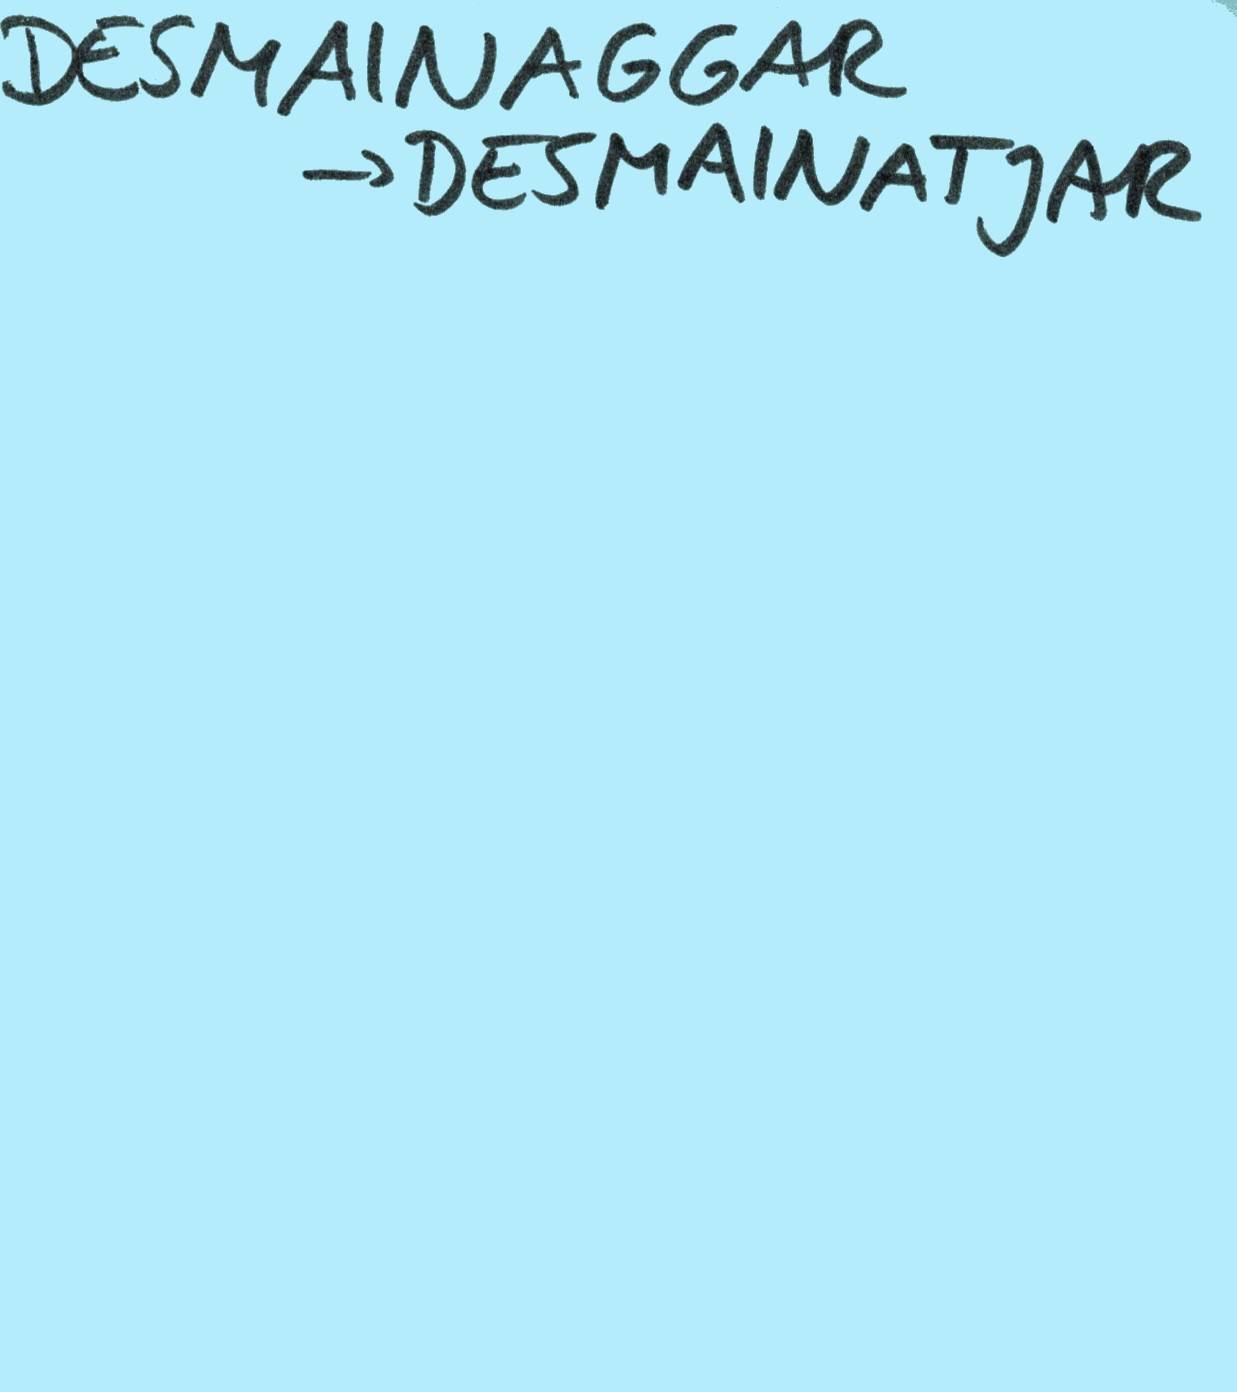 DESMAINAGGAR
→DESMAINATJAR